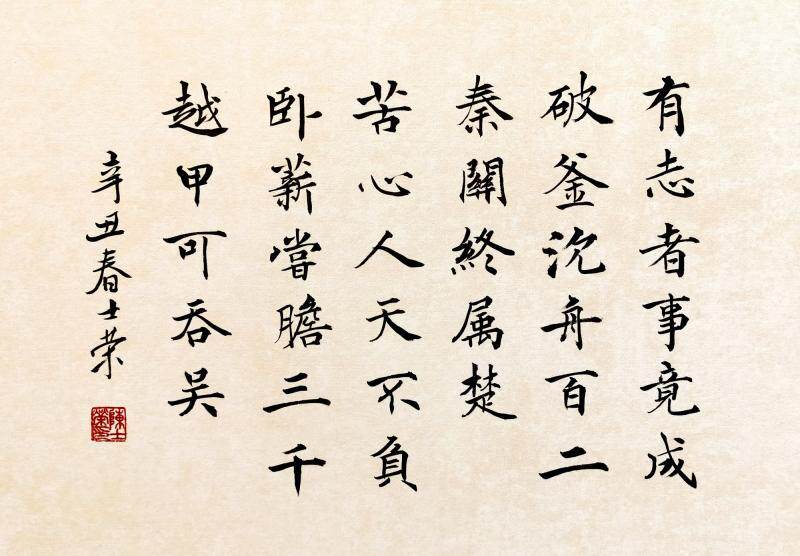 有志者事竟成
破釜沈舟百二
秦關終属楚
苦心人天不負
卧薪嘗膽三千
越甲可吞吴
辛丑春士荣